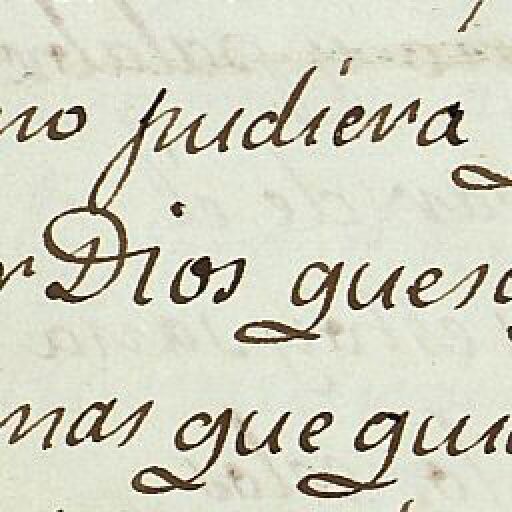 no pudiera
r Dios que s
mas que qui